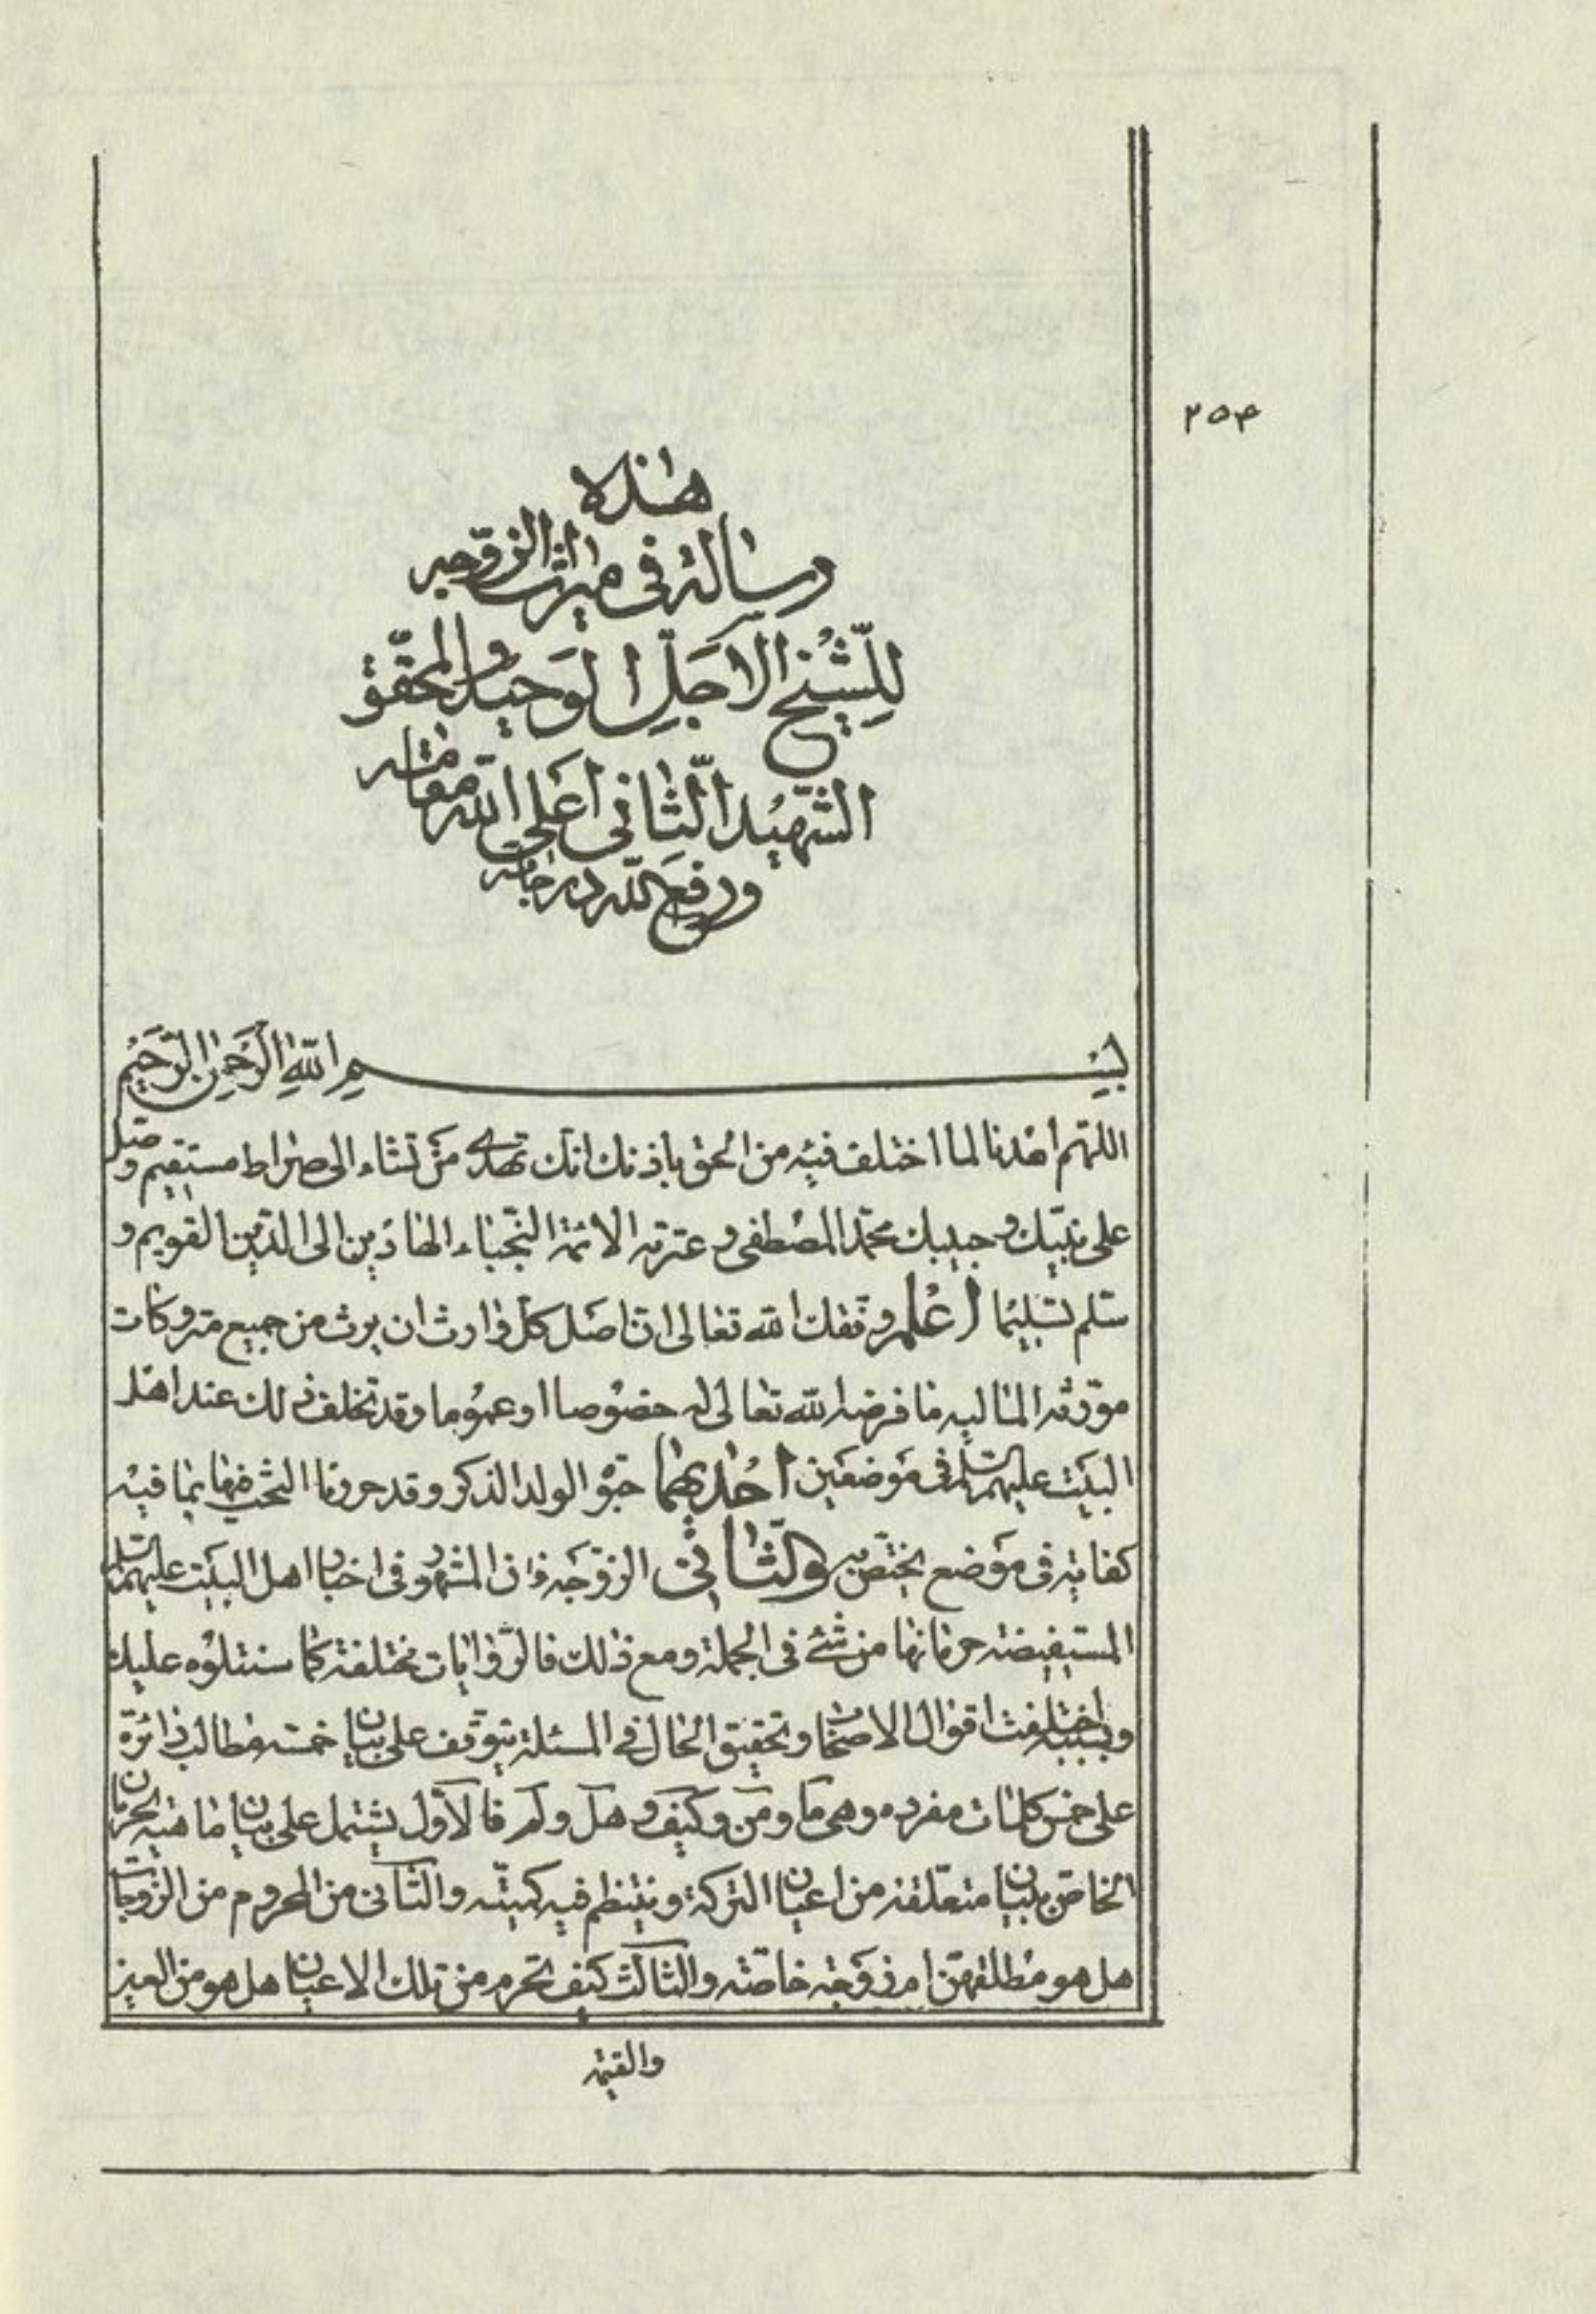 ٢٥۴
هذه
رسالة في ميراث الزوجه
للشيخ الاجل الوحيد والمحقق
الشهيد الثاني اعلى الله مقامه
ورفع الله درجاته
بسم الله الرحمن الرحيم
اللهم اهدنا لما اختلف فيه من الحق باذنك انك تهدى من تشاء الى صراط مستقيم وصل
على نبيك وحبيبك محمد المصطفى وعترته الائمة النجباء الهادين الى الدين القويم و
سلم تسليما اعلم وفقك الله تعالى ان اصل كل وارث ان يرث من جميع متروكات
مورثه الماليه ما فرضه الله تعالى له خصوصا او عموما وقد تخلف ذلك عند اهل
البيت عليهم السلم في موضعين احديهما حبو الولد الذكر وقد حررنا البحث فيها بما فيه
كفاية في موضع يختص به والثاني الزوجة فان المشهور في اخبار اهل البيت عليهم السلم
المستفيضة حرمانها من شئ في الجملة ومع ذلك فالروايات مختلفة كما سنتلوه عليك
وبسببه اختلفت اقوال الاصحاب وتحقيق الحال في المسئلة يتوقف على بيان خمسه مطالب دائرة
على خمس كلمات مفرده وهى ما ومن وكيف وهل ولم فالاول يشتمل على بيان ماهيه الحرمان
الخاص ببيان متعلقه من اعيان التركة وينتظم فيه كميته والثاني من المحروم من الزوجات
هل هو مطلقهن ام زوجة خاصة والثالث كيف تحرم من تلك الاعيان هل هو من العين
والقيمة